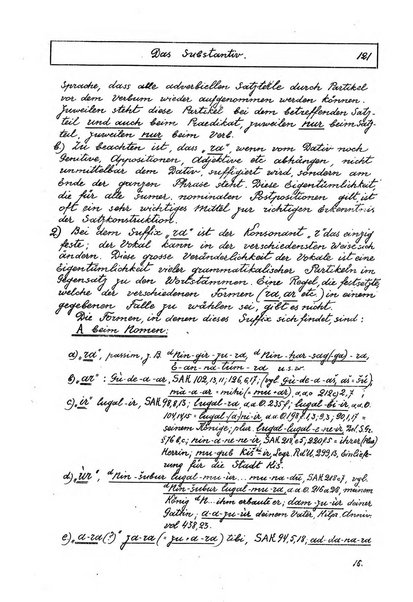 Das Substantiv. 121
Sprache, dass alle adverbiellen Satzteile durch Partikel
vor dem Verbum wieder aufgenommen werden können.
Zuweilen steht diese Partikel bei dem betreffenden Satz-
teil und auch beim Praedikat, zuweilen nur beim Satz-
teil, zuweilen nur beim Verb.
b) Zu beachten ist, dass „ra", wenn vom Dativ noch
Genitive, Appositionen, Adjektive etc abhängen, nicht
unmittelbar dem Dativ, suffigiert wird, sondern am
Ende der ganzen Phrase steht. Diese Eigentümlichkeit,
die für alle sumer. nominalen Postpositionen gilt, ist
oft ein sehr wichtiges Mittel zur richtigen Erkenntnis
der Satzkonstruktion.
2) Bei dem Suffix „ra" ist der Konsonant „r" das einzig
feste; der Vokal kann in der verschiedensten Weise sich
ändern. Diese grosse Veränderlichkeit der Vokale ist eine
Eigentümlichkeit vieler grammatikalischer Partikeln im
Gegensatz zu den Wortstämmen. Eine Regel, die festsetzte,
welche der verschiedenen Formen (ra, ar etc.) in einem
gegebenen Falle zu wählen sei, gibt es nicht.
Die Formen, in denen dieses Suffix sich findet, sind:
A beim Nomen:
a) „ra", passim, z.B. ᵈNin-gir-zu-ra, ᵈNin-ḫar-sag(-ga)-ra,
E-an-na-tum-ra u.s.w.
b) „ar": Gù-de-a-ar, SAK 102, 13, 11; 126, 6, 17;
c) „ir" lugal-ir, SAK
seinem Könige; plur. lugal-lugal-e-ne-ir
Herrin; mu-gub Kiš ir, 293, 13, einlief-
erung für die Stadt Kiš.
d) „úr", ᵈNin-šubur lugal-mu-ir... mu-na-dù, SAK vgl.
ᵈNin-šubur lugal-mu-ra, meinem
König N. ihm erbaute er; dam-zu-ir deiner
Gattin; a-a-zu-ir deinem Vater, Hilpr. Anniv.
vol 438, 23.
e) „a-ra(?)" za-ra (= zu+a-ra) tibi, SAK 94, 5, 18, ad-da-na-ra
16.